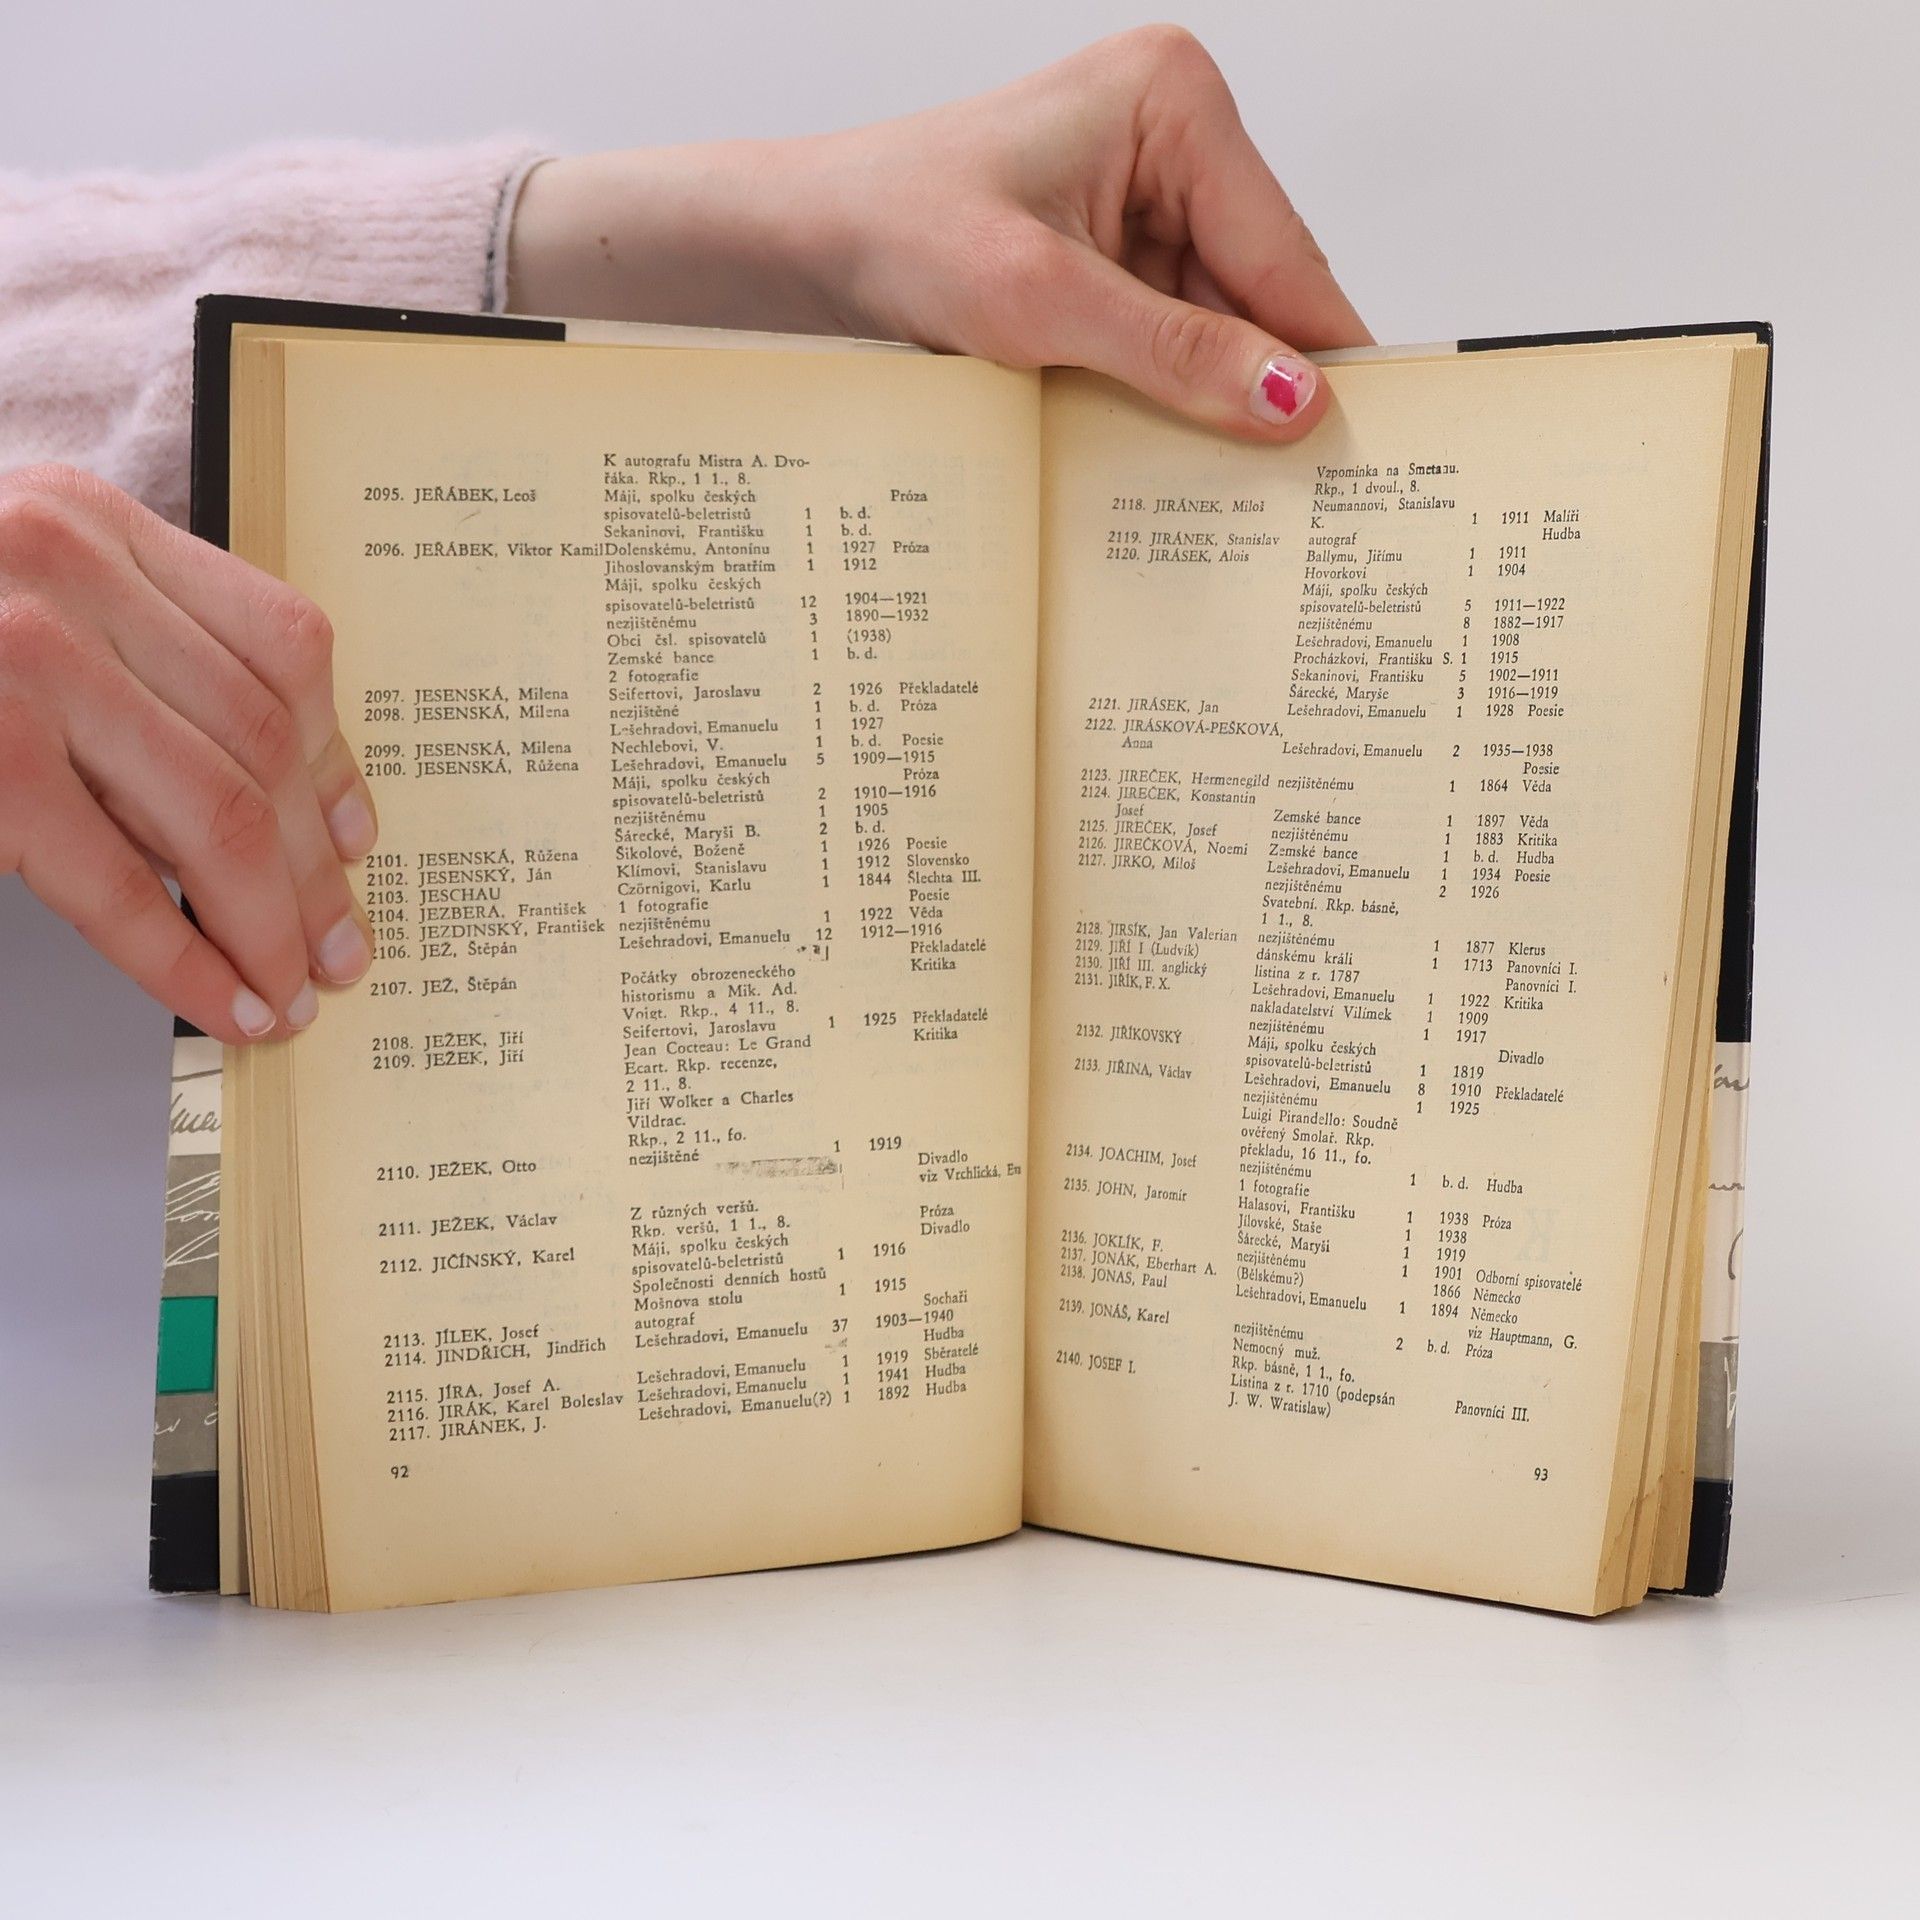 K autografu Mistra A. Dvo-
řáka. Rkp., 1 1., 8.
2095. JEŘÁBEK, Leoš Máji, spolku českých Próza
spisovatelů-beletristů 1 b. d.
Sekaninovi, Františku 1 b. d.
2096. JEŘÁBEK, Viktor Kamil Dolenskému, Antonínu 1 1927 Próza
Jihoslovanským bratřím 1 1912
Máji, spolku českých
spisovatelů-beletristů 12 1904—1921
nezjištěnému 3 1890—1932
Obci čsl. spisovatelů 1 (1938)
Zemské bance 1 b. d.
2 fotografie
2097. JESENSKÁ, Milena Seifertovi, Jaroslavu 2 1926 Překladatelé
2098. JESENSKÁ, Milena nezjištěné 1 b. d. Próza
Lešehradovi, Emanuelu 1 1927
2099. JESENSKÁ, Milena Nechlebovi, V. 1 b. d. Poesie
2100. JESENSKÁ, Růžena Lešehradovi, Emanuelu 5 1909—1915
Máji, spolku českých Próza
spisovatelů-beletristů 2 1910—1916
nezjištěnému 1 1905
Šárecké, Maryši B. 2 b. d.
2101. JESENSKÁ, Růžena Šikolové, Boženě 1 1926 Poesie
2102. JESENSKÝ, Ján Klímovi, Stanislavu 1 1912 Slovensko
2103. JESCHAU Czörnigovi, Karlu 1 1844 Šlechta III.
2104. JEZBERA, František 1 fotografie Poesie
2105. JEZDINSKÝ, František nezjištěnému 1 1922 Věda
2106. JEŽ, Štěpán Lešehradovi, Emanuelu 12 1912—1916
Překladatelé
2107. JEŽ, Štěpán Počátky obrozeneckého Kritika
historismu a Mik. Ad.
Voigt. Rkp., 4 11., 8.
2108. JEŽEK, Jiří Seifertovi, Jaroslavu 1 1925 Překladatelé
2109. JEŽEK, Jiří Jean Cocteau: Le Grand Kritika
Ecart. Rkp. recenze,
2 11., 8.
Jiří Wolker a Charles
Vildrac.
Rkp., 2 11., fo.
2110. JEŽEK, Otto nezjištěné 1 1919
Divadlo
viz Vrchlická, Em
2111. JEŽEK, Václav Z různých veršů. Próza
Rkp. veršů, 1 1., 8. Divadlo
2112. JIČÍNSKÝ, Karel Máji, spolku českých
spisovatelů-beletristů 1 1916
Společnosti denních hostů
Mošnova stolu 1 1915
2113. JÍLEK, Josef autograf Sochaři
2114. JINDŘICH, Jindřich Lešehradovi, Emanuelu 37 1903—1940
Hudba
2115. JÍRA, Josef A. Lešehradovi, Emanuelu 1 1919 Sběratelé
2116. JIRÁK, Karel Boleslav Lešehradovi, Emanuelu 1 1941 Hudba
2117. JIRÁNEK, J. Lešehradovi, Emanuelu(?) 1 1892 Hudba
92
Vzpomínka na Smetanu.
Rkp., 1 dvoul., 8.
2118. JIRÁNEK, Miloš Neumannovi, Stanislavu
K. 1 1911 Malíři
2119. JIRÁNEK, Stanislav autograf Hudba
2120. JIRÁSEK, Alois Ballymu, Jiřímu 1 1911
Hovorkovi 1 1904
Máji, spolku českých
spisovatelů-beletristů 5 1911—1922
nezjištěnému 8 1882—1917
Lešehradovi, Emanuelu 1 1908
Procházkovi, Františku S. 1 1915
Sekaninovi, Františku 5 1902—1911
Šárecké, Maryše 3 1916—1919
2121. JIRÁSEK, Jan Lešehradovi, Emanuelu 1 1928 Poesie
2122. JIRÁSKOVÁ-PEŠKOVÁ,
Anna Lešehradovi, Emanuelu 2 1935—1938
Poesie
2123. JIREČEK, Hermenegild nezjištěnému 1 1864 Věda
2124. JIREČEK, Konstantin
Josef Zemské bance 1 1897 Věda
2125. JIREČEK, Josef nezjištěnému 1 1883 Kritika
2126. JIREČKOVÁ, Noemi Zemské bance 1 b. d. Hudba
2127. JIRKO, Miloš Lešehradovi, Emanuelu 1 1934 Poesie
nezjištěnému 2 1926
Svatební. Rkp. básně,
1 1., 8.
2128. JIRSÍK, Jan Valerian nezjištěnému 1 1877 Klerus
2129. JIŘÍ I (Ludvík) dánskému králi 1 1713 Panovníci I.
2130. JIŘÍ III. anglický listina z r. 1787 Panovníci I.
2131. JIŘÍK, F. X. Lešehradovi, Emanuelu 1 1922 Kritika
nakladatelství Vilímek 1 1909
nezjištěnému 1 1917
2132. JIŘÍKOVSKÝ Máji, spolku českých Divadlo
spisovatelů-beletristů 1 1819
2133. JIŘINA, Václav Lešehradovi, Emanuelu 8 1910 Překladatelé
nezjištěnému 1 1925
Luigi Pirandello: Soudně
ověřený Smolař. Rkp.
překladu, 16 11., fo.
2134. JOACHIM, Josef nezjištěnému 1 b. d. Hudba
1 fotografie
2135. JOHN, Jaromír Halasovi, Františku 1 1938 Próza
Jílovské, Staše 1 1938
Šárecké, Maryši 1 1919
2136. JOKLÍK, F. nezjištěnému 1 1901 Odborní spisovatelé
2137. JONÁK, Eberhart A. (Bělskému?) 1866 Německo
2138. JONAS, Paul Lešehradovi, Emanuelu 1 1894 Německo
viz Hauptmann, G.
2139. JONÁŠ, Karel nezjištěnému 2 b. d. Próza
Nemocný muž.
Rkp. básně, 1 1., fo.
2140. JOSEF I. Listina z r. 1710 (podepsán
J. W. Wratislaw) Panovníci III.
93